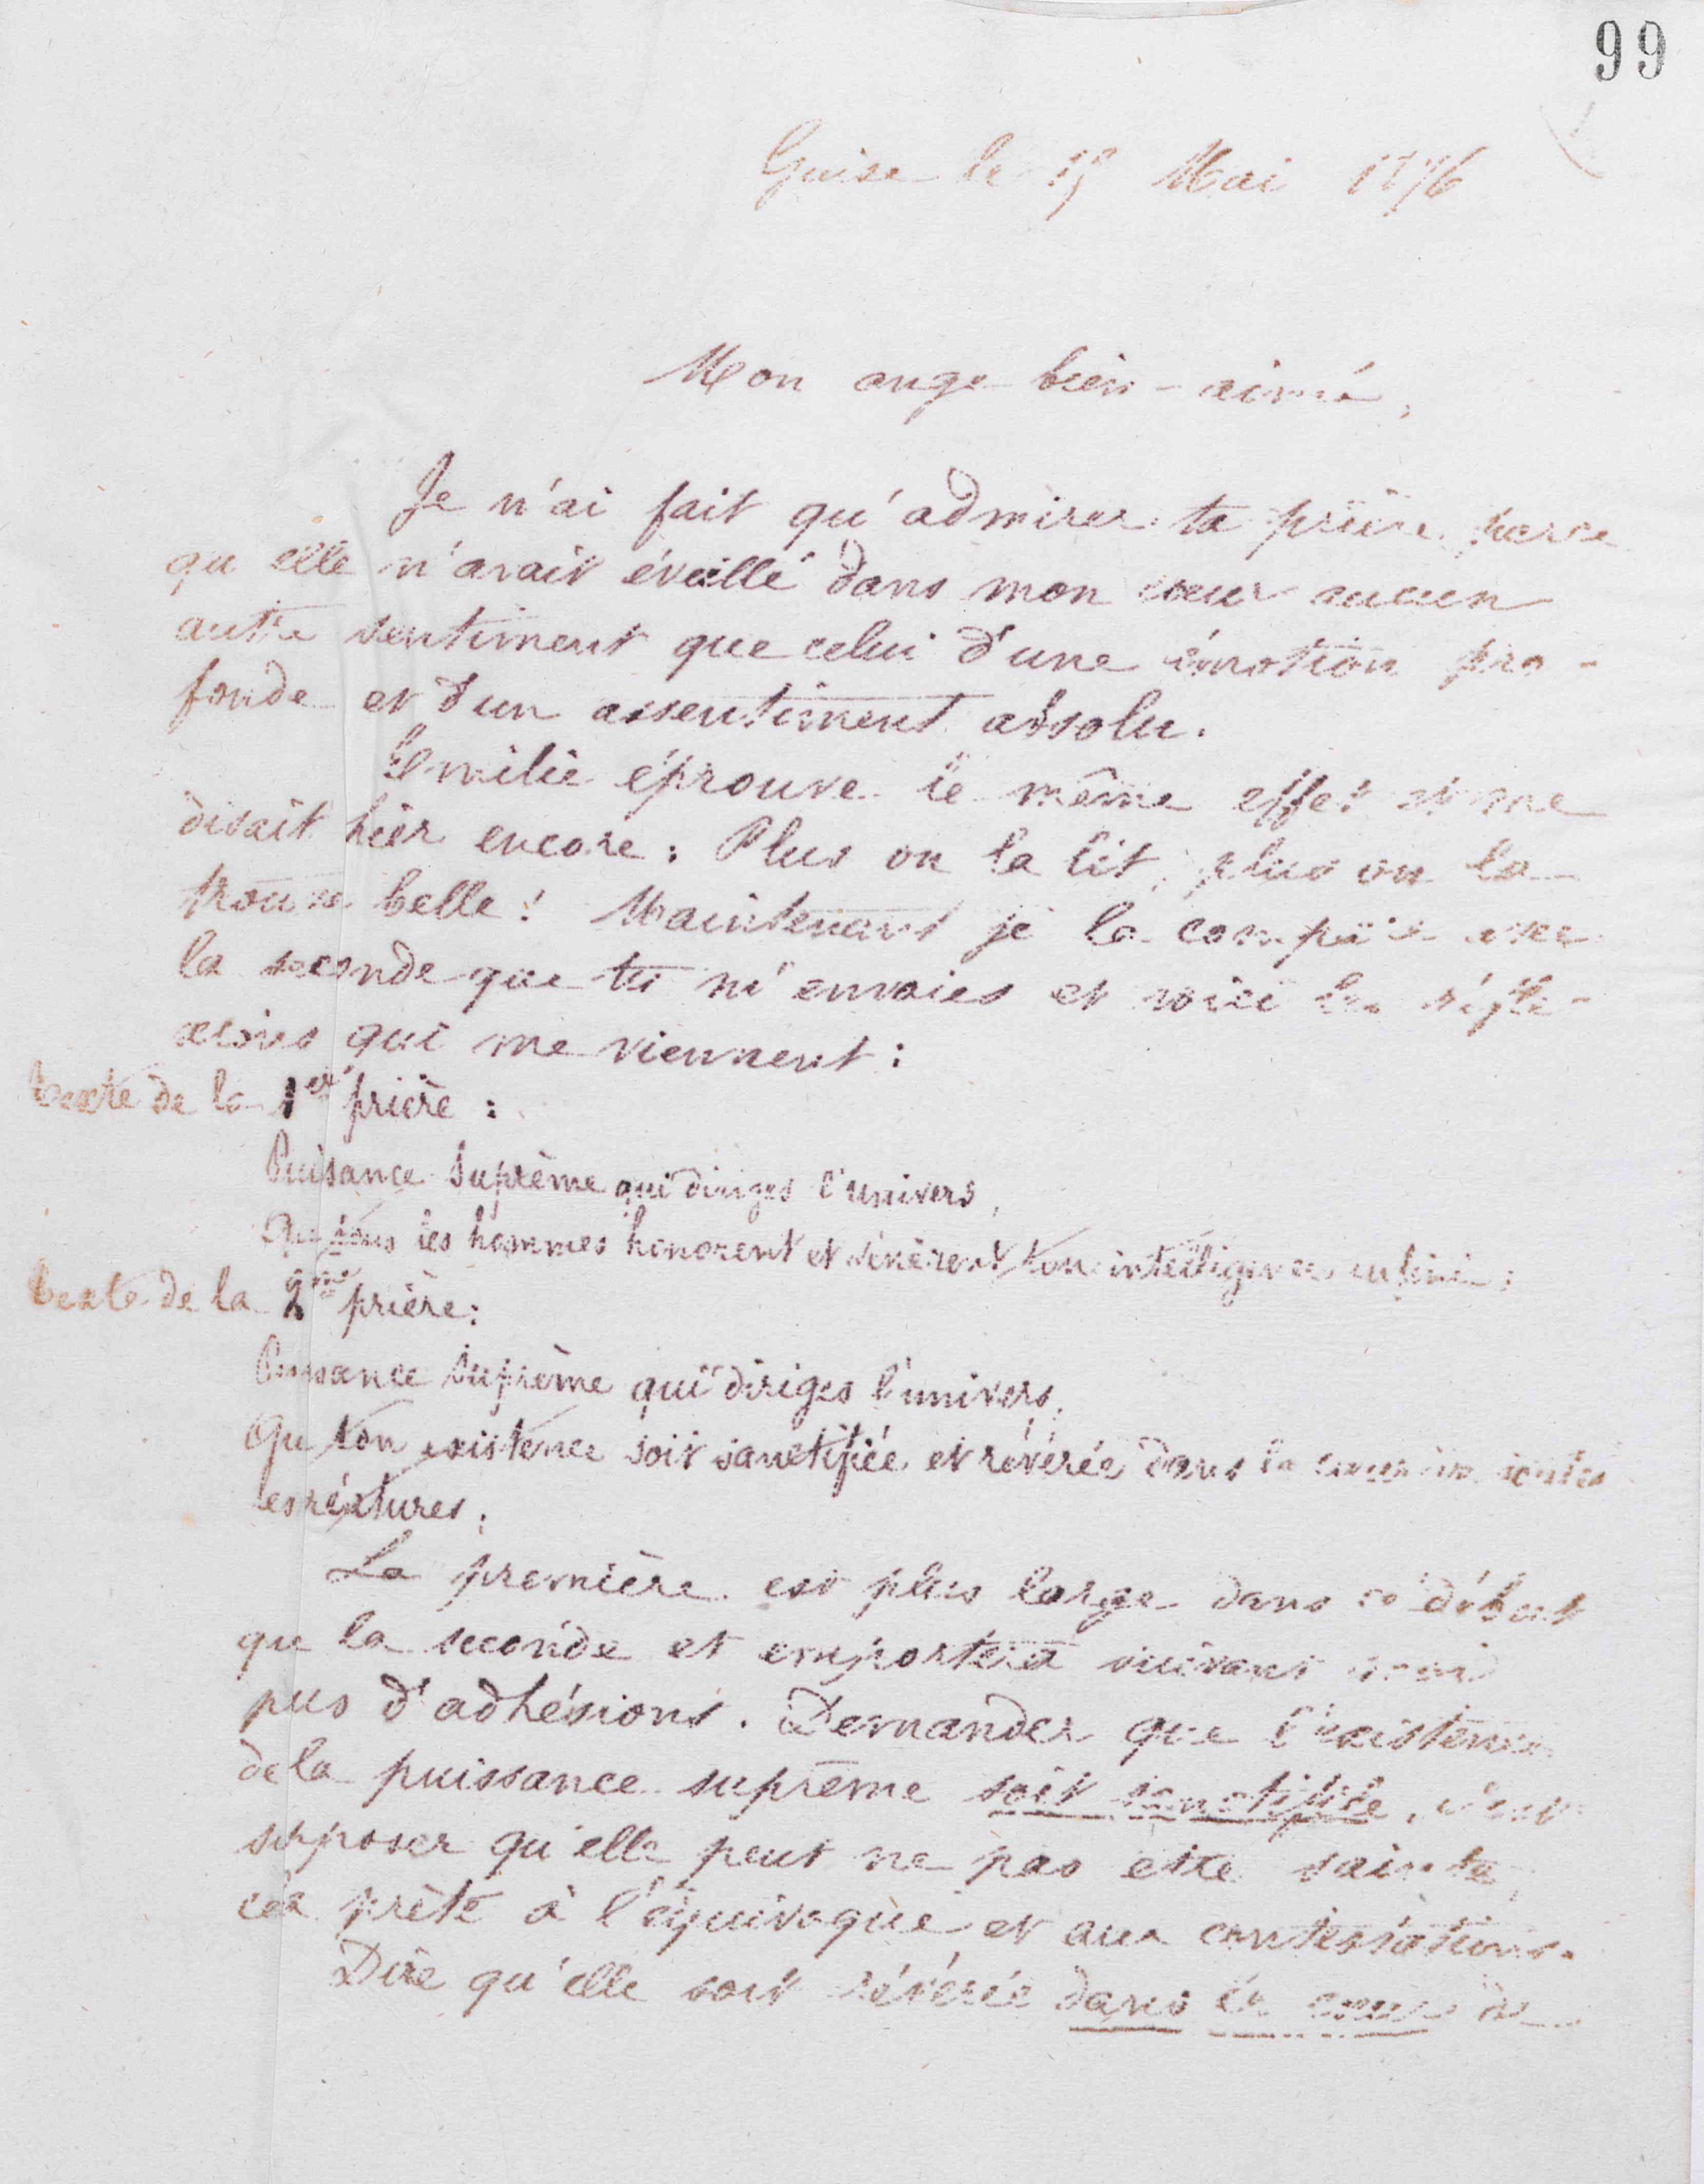 99
Guise le 15 Mai 1876
Mon ange bien-aimé,
Je n'ai fait qu'admirer ta prière parce
qu'elle n'avait éveillé dans mon cœur aucun
autre sentiment que celui d'une émotion pro-
fonde et d'un assentiment absolu.
Emilie éprouve le même effet et me
disait hier encore : Plus on la lit, plus on la
trouve belle ! Maintenant je la compare avec
la seconde que tu m'envoies et voici les réfle-
xions qui me viennent :
texte de la 1ère prière :
Puisance Suprême qui diriges l'univers,
Que tous les hommes honorent et révèrent ton intelligence infinie ;
texte de la 2me prière :
Puissance Suprême qui diriges l'univers,
Que ton existence soit sanctifiée et révérée dans le cœur de toutes
les réatures ;
La première est plus large dans ce début
que la seconde et emportera suivant moi
pus d'adhésions. Demander que l'existence
de la puissance suprême soit sanctifiée, c'est
supposer qu'elle peut ne pas être sainte,
cela prête à l'équivoque et aux contestations.
Dire qu'elle soit révérée dans le cœur de